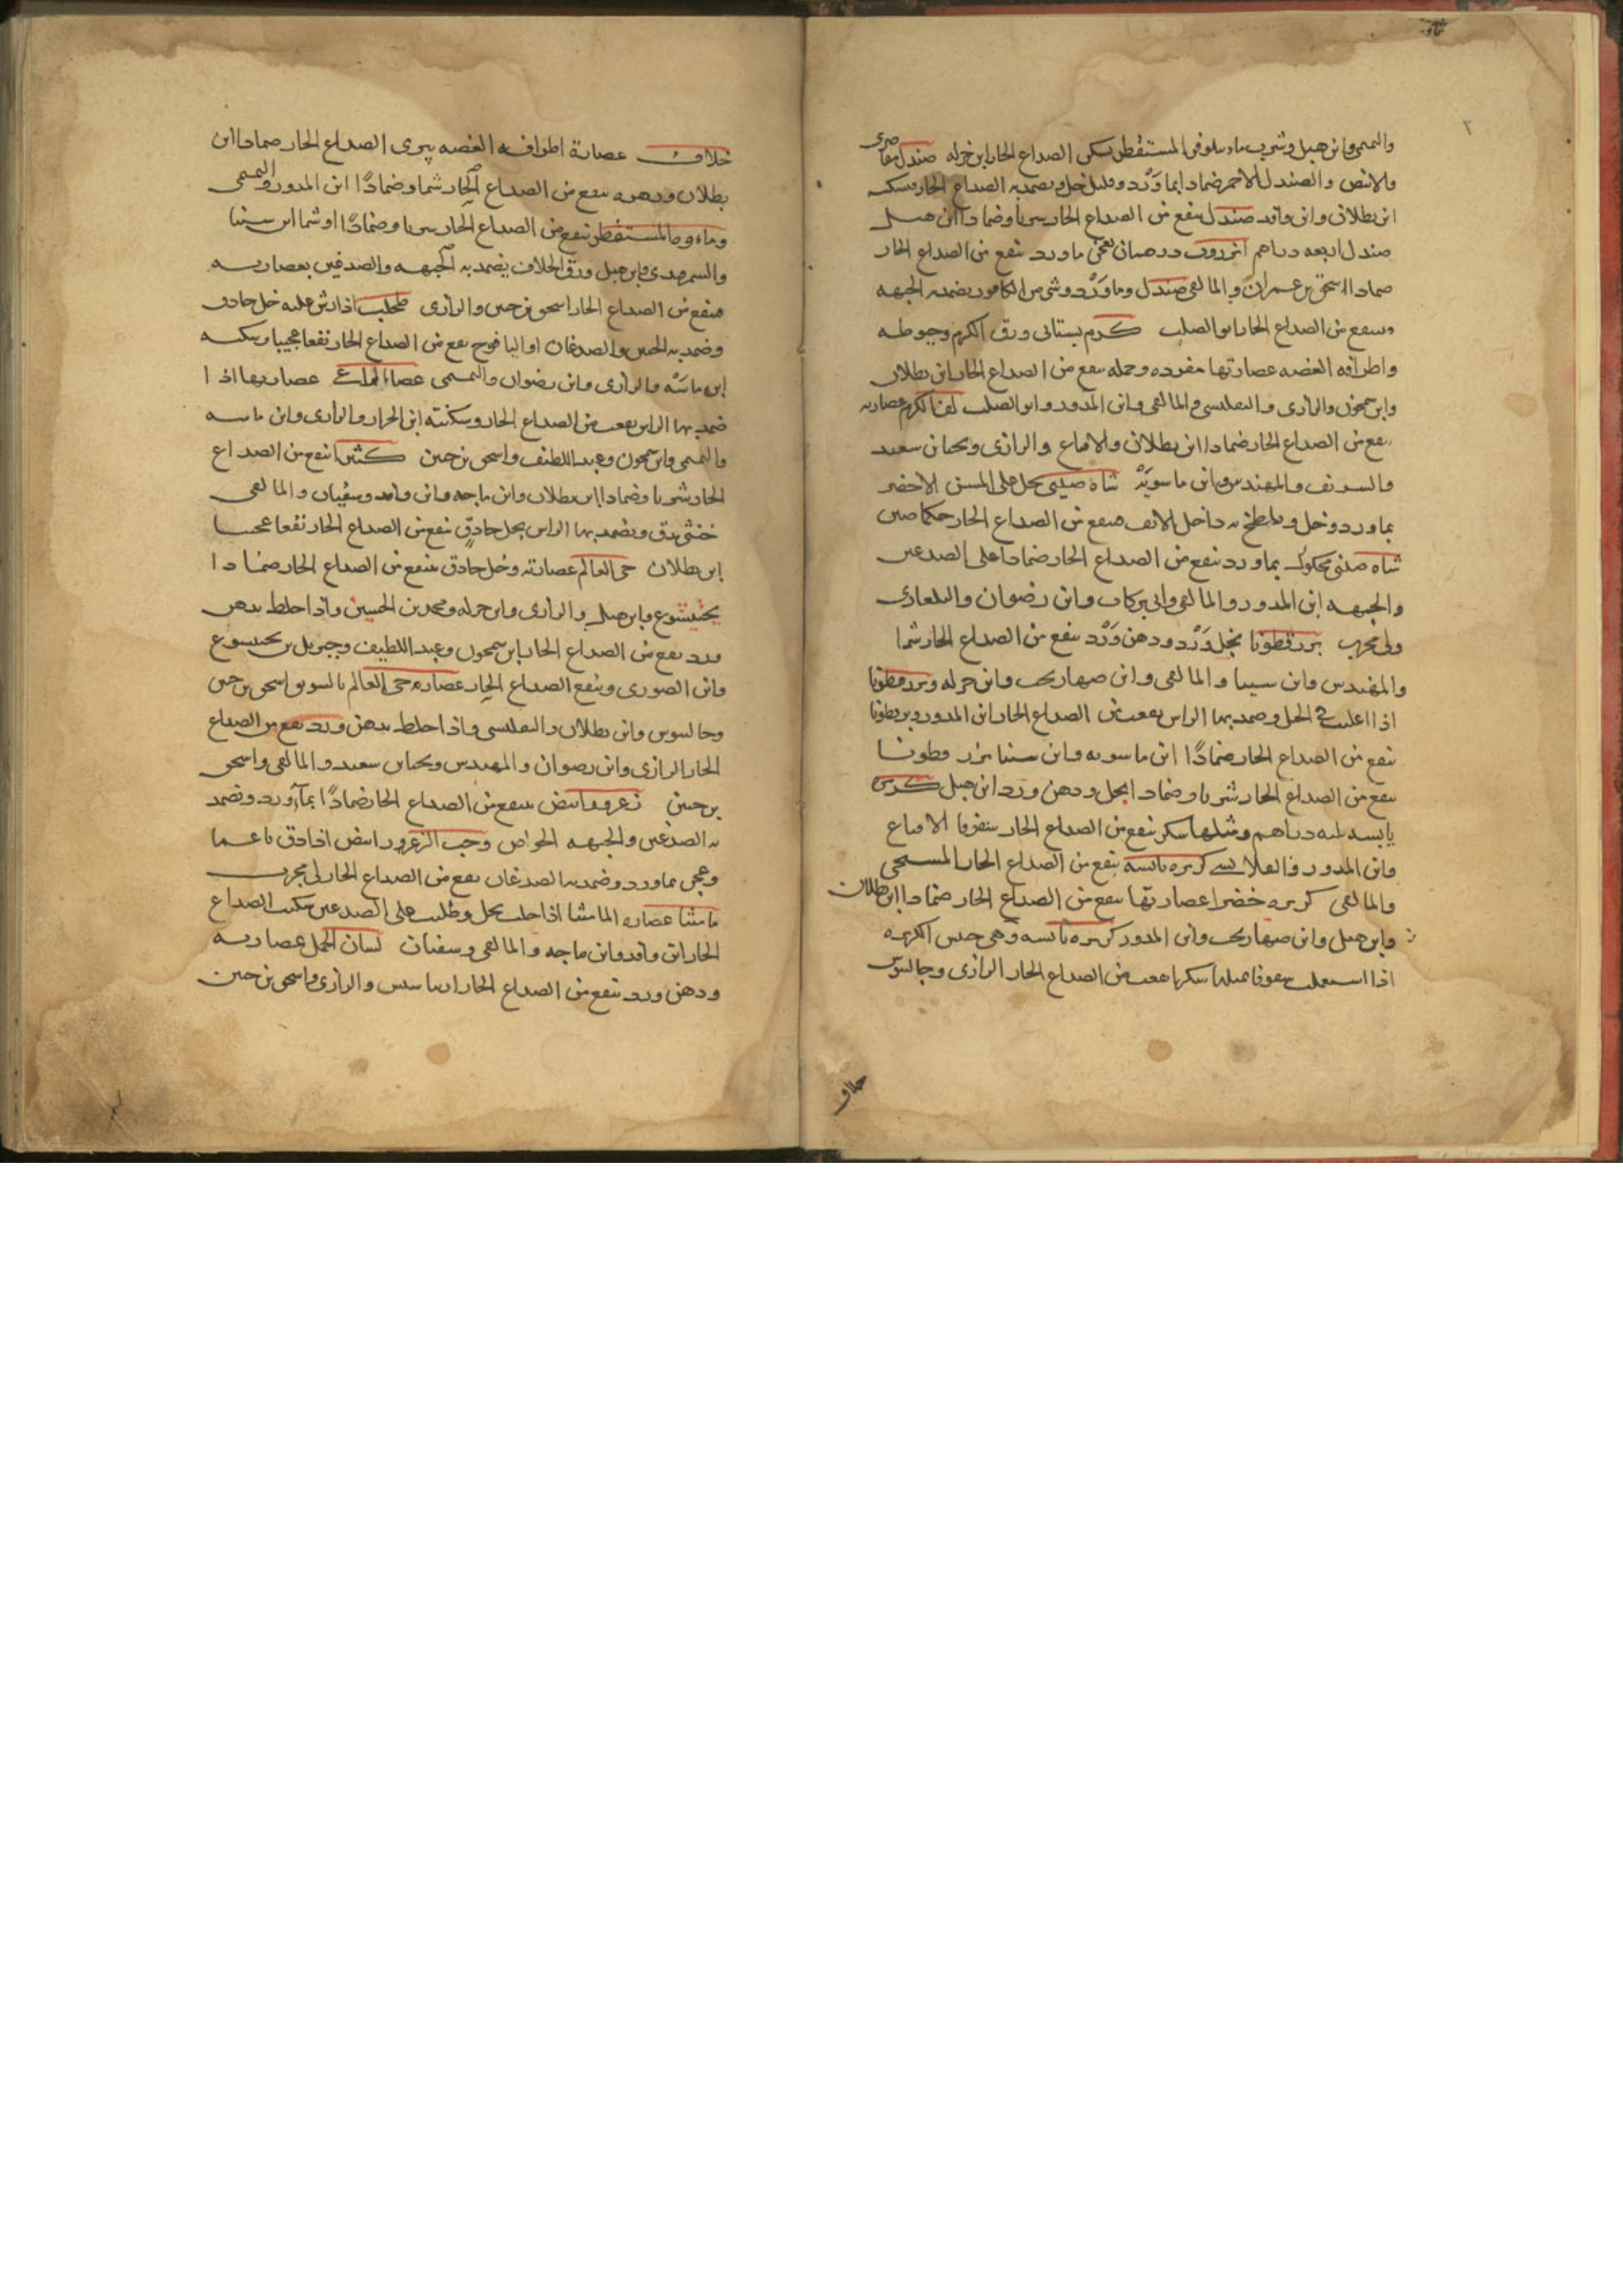 والتميمى وابن هبل وشرب ماء نيلوفر المستقطر يسكن الصداع الحار ابن جزله صندل مقاصرى
والابيض والصندل الاحمر ضمادا بما وَرْد وقليل خل ويضمد به الصداع الحار ويسكنه
ابن بطلان وابن وافد صندل ينفع من الصداع الحار شربا وضمادا ابن هبل
صندل اربعه دراهم انزروت درهمان يعجن بما ورد ينفع من الصداع الحار
ضمادا اسحق بن عمران والمالقى صندل وما وَرْد وشى من الكافور يضمد به الجبهه
وينفع من الصداع الحار ابو الصلت كرم بستانى ورق الكرم وخيوطه
واطرافه الغضه عصارتها مفرده وحمله ينفع من الصداع الحار ابن بطلان
وابن سمجون والرازى والتفليسى والمالقى وابن المدور وابو الصلت لفا الكرم عصارته
ينفع من الصداع الحار ضمادا ابن بطلان والاقناع والرازى ويحيا بن سعيد
والشريف والمهندس وابن ماسويَهْ شاه صينى يحل على المسن الاخضر
بما ورد وخل ويلطخ به داخل الانف فينفع من الصداع الحار حكما صين
شاه صينى محكوك بما ورد ينفع من الصداع الحار ضمادا على الصدغين
والجبهه ابن المدور والمالقى وابى بركات وابن رضوان والبلغارى
ولى مجرب بزر قطونا بخل وَرْد ودهن وَرْد ينفع من الصداع الحار شما
والمهندس وابن سينا والمالقى وابن صهاربخت وابن جزله وبزر قطونا
اذا اغليت فى الخل وضمد بها الراس نفعت من الصداع الحار ابن المدور وبزر قطونا
ينفع من الصداع الحار ضمادًا ابن ماسويه وابن سينا بزر قطونا
ينفع من الصداع الحار شربا وضمادا بخل ودهن ورد ابن هبل كزبره
يابسه ثلثه دراهم ومثلها سكر ينفع من الصداع الحار سفوفا الاقناع
وابن المدور والعلائى كزبره يابسه ينفع من الصداع الحار المسيحى
والمالقى كزبره خضرا عصارتها ينفع من الصداع الحار ضمادا ابن بطلان
وابن هبل وابن صهاربخت وابن المدور كزبره يابسه وهى جنس الكزبره
اذا استعملت سفوفا بمثلها سكرا نفعت من الصداع الحار الرازى وجالينوس
خلاف
خلاف عصارة اطرافه الغضه يبرى الصداع الحار ضمادا ابن
بطلان ودهنه ينفع من الصداع الحار شما وضمادًا ابن المدور والتميمى
وماءه وما المستقطر ينفع من الصداع الحار شربا وضمادًا او شما ابن سينا
والسمرقندى وابن هبل ورق الخلاف يضمد به الجبهه والصدغين بعصارته
فينفع من الصداع الحار اسحق بن حنين والرازى طحلب اذا رش عليه خل حاذق
وضمد به الجبين والصدغان او اليافوخ نفع من الصداع الحار نفعا عجيبا ويسكنه
ابن ماسَهْ والرازى وابن رضوان والتميمى عصا الراعى عصارتها اذا
ضمد بها الراس نفعت من الصداع الحار وسكنته ابن الجزار والرازى وابن ماسه
والتميمى وابن سمجون وعبد اللطيف واسحق بن حنين كثيرا ينفع من الصداع
الحار شربا وضمادا ابن بطلان وابن ماجه وابن وافد وسفيان والمالقى
خنثى يدق ويضمد بها الراس بخل حاذق ينفع من الصداع الحار نفعا عجيبا
ابن بطلان حى العالم عصارته وخل حاذق ينفع من الصداع الحار ضمادا
بختيشوع وابن هبل والرازى وابن جزله ومحمد بن الحسين واذا خلط بدهن
ورد نفع من الصداع الحار ابن سمجون وعبد اللطيف وجبريل بن بختيشوع
وابن الصورى وينفع الصداع الحار عصاره حى العالم بالسويق اسحق بن حنين
وجالينوس وابن بطلان والتفليسى واذا خلط بدهن ورد نفع من الصداع
الحار الرازى وابن رضوان والمهندس ويحيا بن سعيد والمالقى واسحق
بن حنين زعرور ابيض ينفع من الصداع الحار ضمادًا بماورد وتضمد
به الصدغين والجبهه الخواص وحب الزعرور ابيض اذا دق ناعما
وعجن بماورد وضمد به الصدغان نفع من الصداع الحار لى مجرب
مامثيا عصاره المامثيا اذا حلت بخل وطليت على الصدغين سكنت الصداع
الحار ابن وافد وابن ماجه والمالقى وسفيان لسان الحمل عصارته
ودهن ورد ينفع من الصداع الحار والرازى واسحق بن حنين